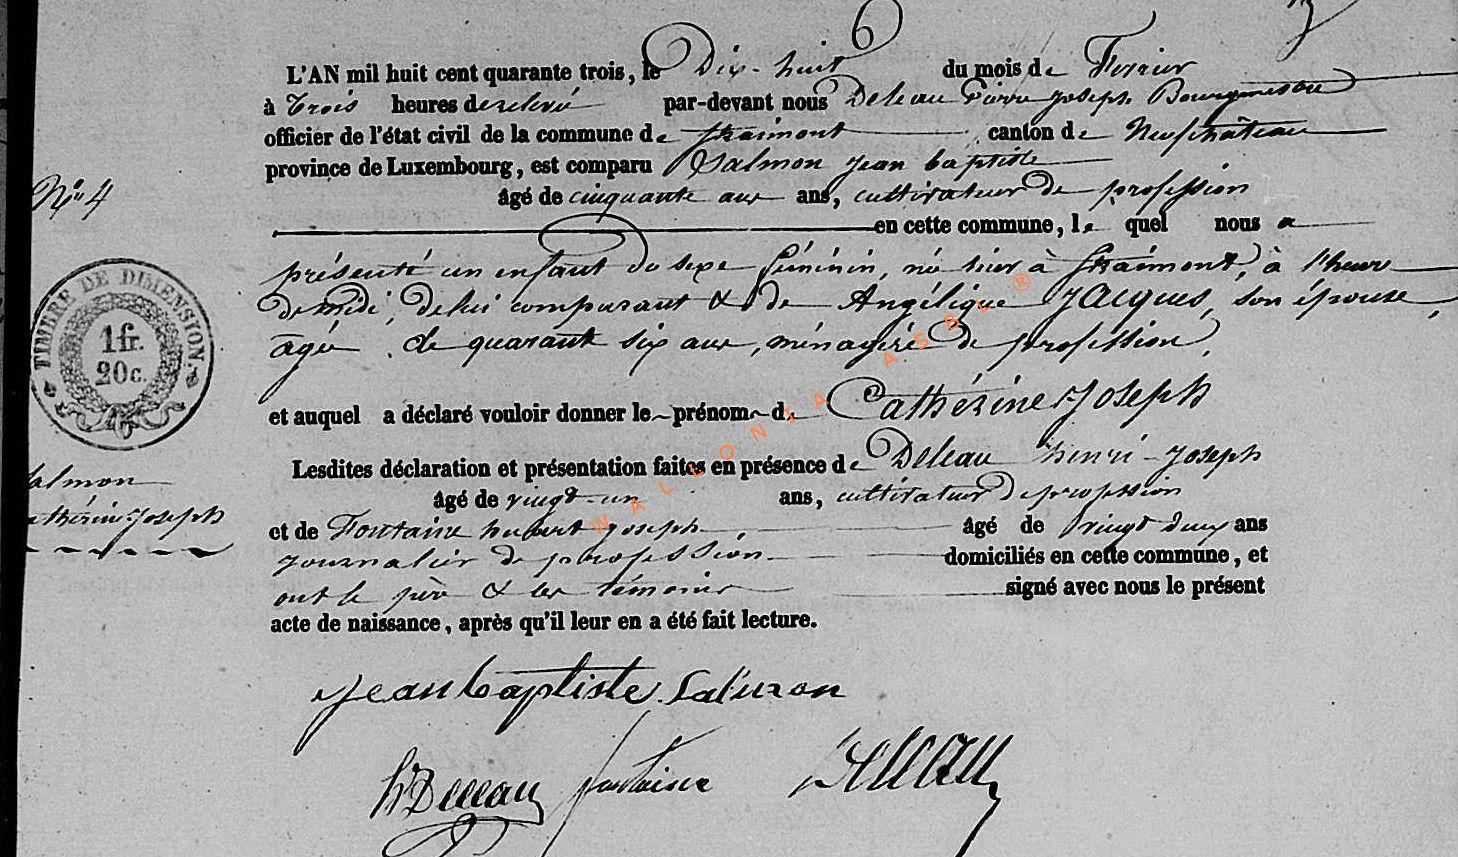 6
L'AN mil huit cent quarante trois, le Dix-huit du mois de Fevrier
à Trois heures de relevée par-devant nous Deleau Pierre Joseph Bourgmestre
officier de l'état civil de la commune de Straimont canton de Neufchâteau
province de Luxembourg, est comparu Salmon Jean baptiste
âgé de cinquante ans, cultivateur de profession
en cette commune, le quel nous a
présenté un enfant du sexe féminin, née hier à Straimont, à l'heure
de midi, de lui comparant & de Angélique Jacques, son épouse,
agée de quarante six ans, ménagère de profession,
et auquel a déclaré vouloir donner le prénom de Cathérine Joseph
Lesdites déclaration et présentation faites en présence de Deleau henri-Joseph
âgé de vingt-un ans, cultivateur de profession
et de Fontaine hubert joseph âgé de vingt deux ans
journalier de profession domiciliés en cette commune, et
ont le père & les témoins signé avec nous le présent
acte de naissance, après qu'il leur en a été fait lecture.
Jean baptiste Salmon
h Deleau fontaine Deleau
N° 4
TIMBRE DE DIMENSION.
1 fr.
20 c.
Salmon
Cathérine Joseph
WALLONIA ASBL ®